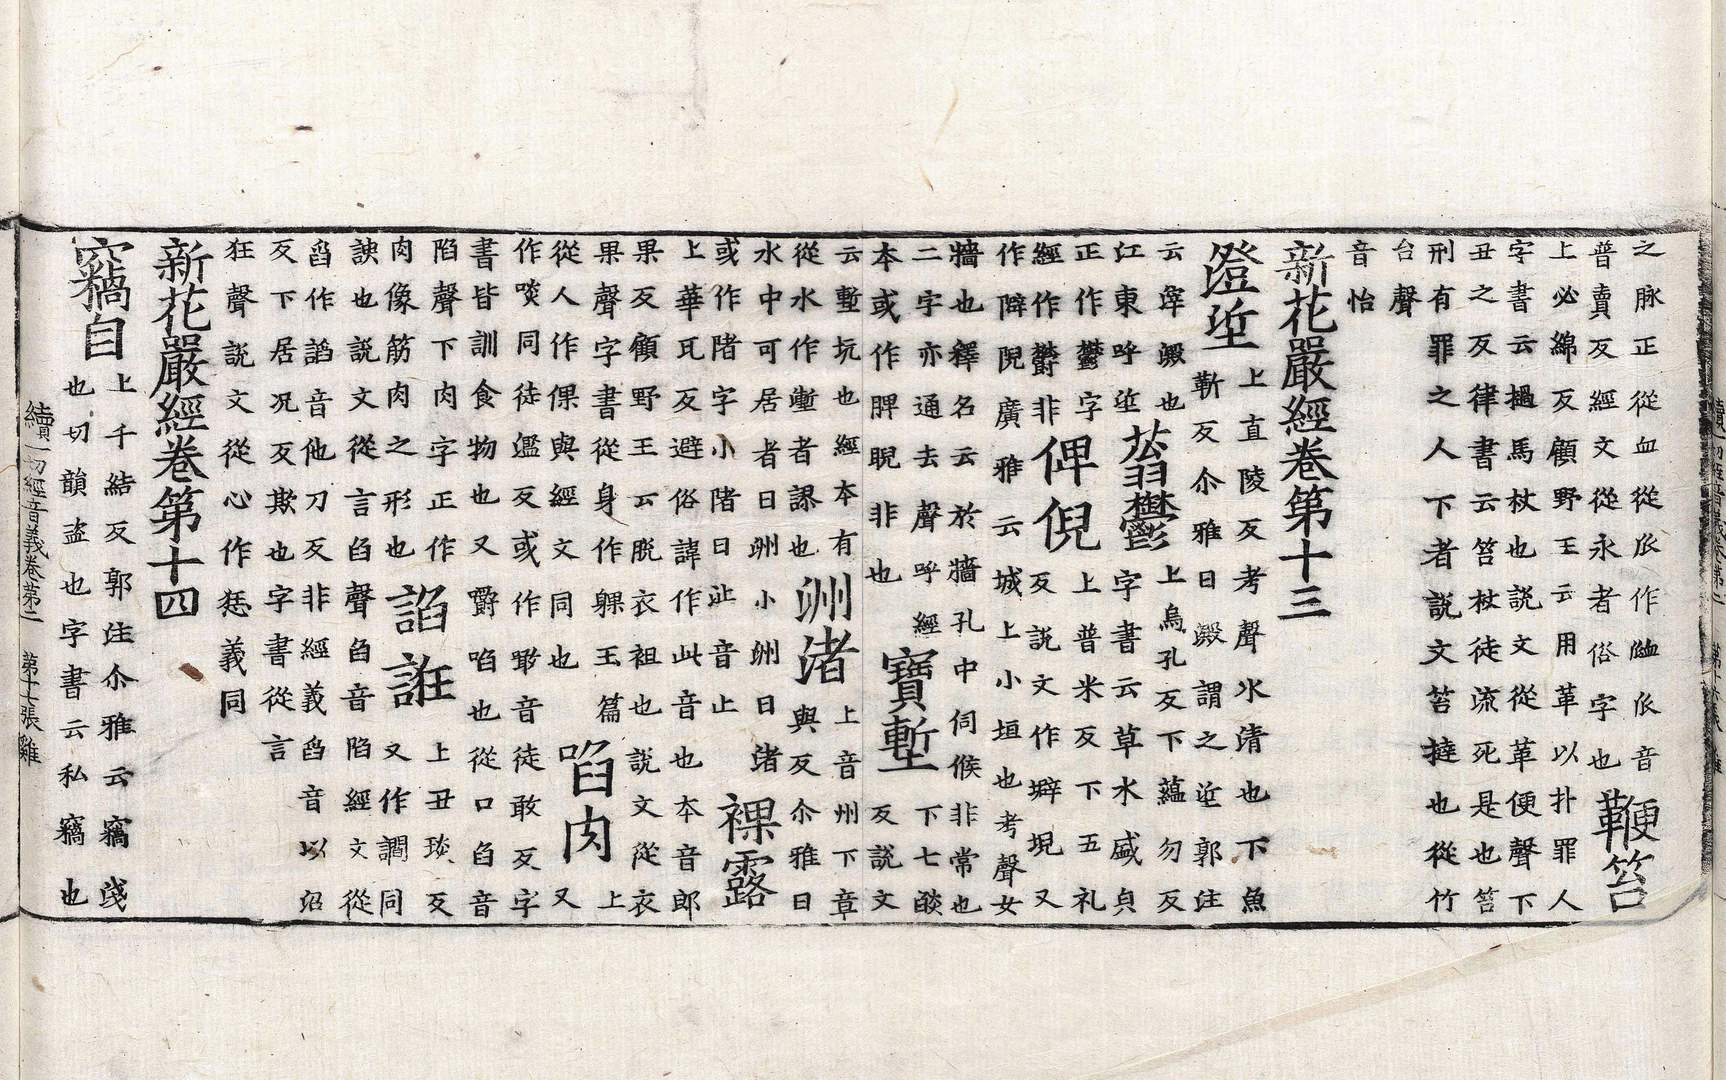 之脉正從血從𠂢作䘑𠂢音
普賣反經文從永者俗字也鞭笞
上必綿反顧野王云用革以扑罪人
字書云撾馬杖也說文從革便聲下
丑之反律書云笞杖徒流死是也笞
刑有罪之人下者說文笞撻也從竹
台聲
音怡
新花嚴經卷第十三
澄垽上直陵反考聲水清也下魚
靳反尒雅曰澱謂之垽郭注
云滓澱也
江東呼垽蓊鬱上烏孔反下蘊勿反
正作鬱字字書云草木盛皃
經作欝非俾倪上普米反下五礼
反說文作壀堄又
作隦隉廣雅云城上小垣也考聲女
牆也釋名云於牆孔中伺候非常也
二字亦通去聲呼經
本或作脾睨非也寶塹下七𦦨
反說文
云塹坑也經本有
從水作漸者誤也洲渚上音州下章
與反尒雅曰
水中可居者曰洲小洲曰渚
或作陼字小陼曰沚音止裸露
上華瓦反避俗諱作此音也本音郎
果反顧野王云脫衣袒也說文從衣
果聲字書從身作躶玉篇
從人作倮與經文同也啗肉上
又
作啖同徒濫反或作噉音徒敢反字
書皆訓食物也又嚼啗也從口臽音
陷聲下肉字正作
肉像筋肉之形也諂誑上丑琰反
又作讇同
諛也說文從言臽聲臽音陷經文從
舀作謟音他刀反非經義舀音以沼
反下居况反欺也字書從言
狂聲說文從心作㤮義同
新花嚴經卷第十四
竊自上千結反郭注尒雅云竊淺
也切韻盜也字書云私竊也
續一切經音義卷第二 第十七張 雞